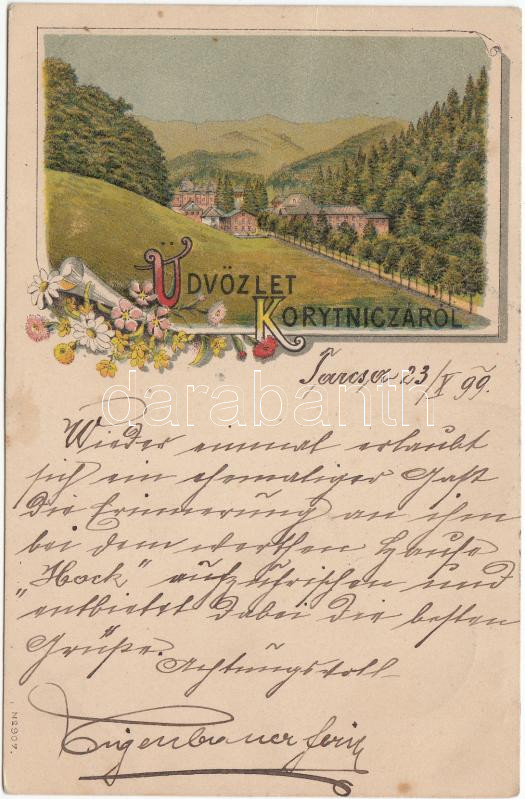 ÜDVÖZLET
KORYTNICZÁRÓL
Tarcsa 23/V 99.
Wieder einmal erlaubt
sich ein ehemaliger Gast
die Erinnerung an ihm
bei dem werthen Hause
"Hock" aufzufrischen und
entbietet dabei die besten
Grüße.
Achtungsvoll
darabanth
No 907.